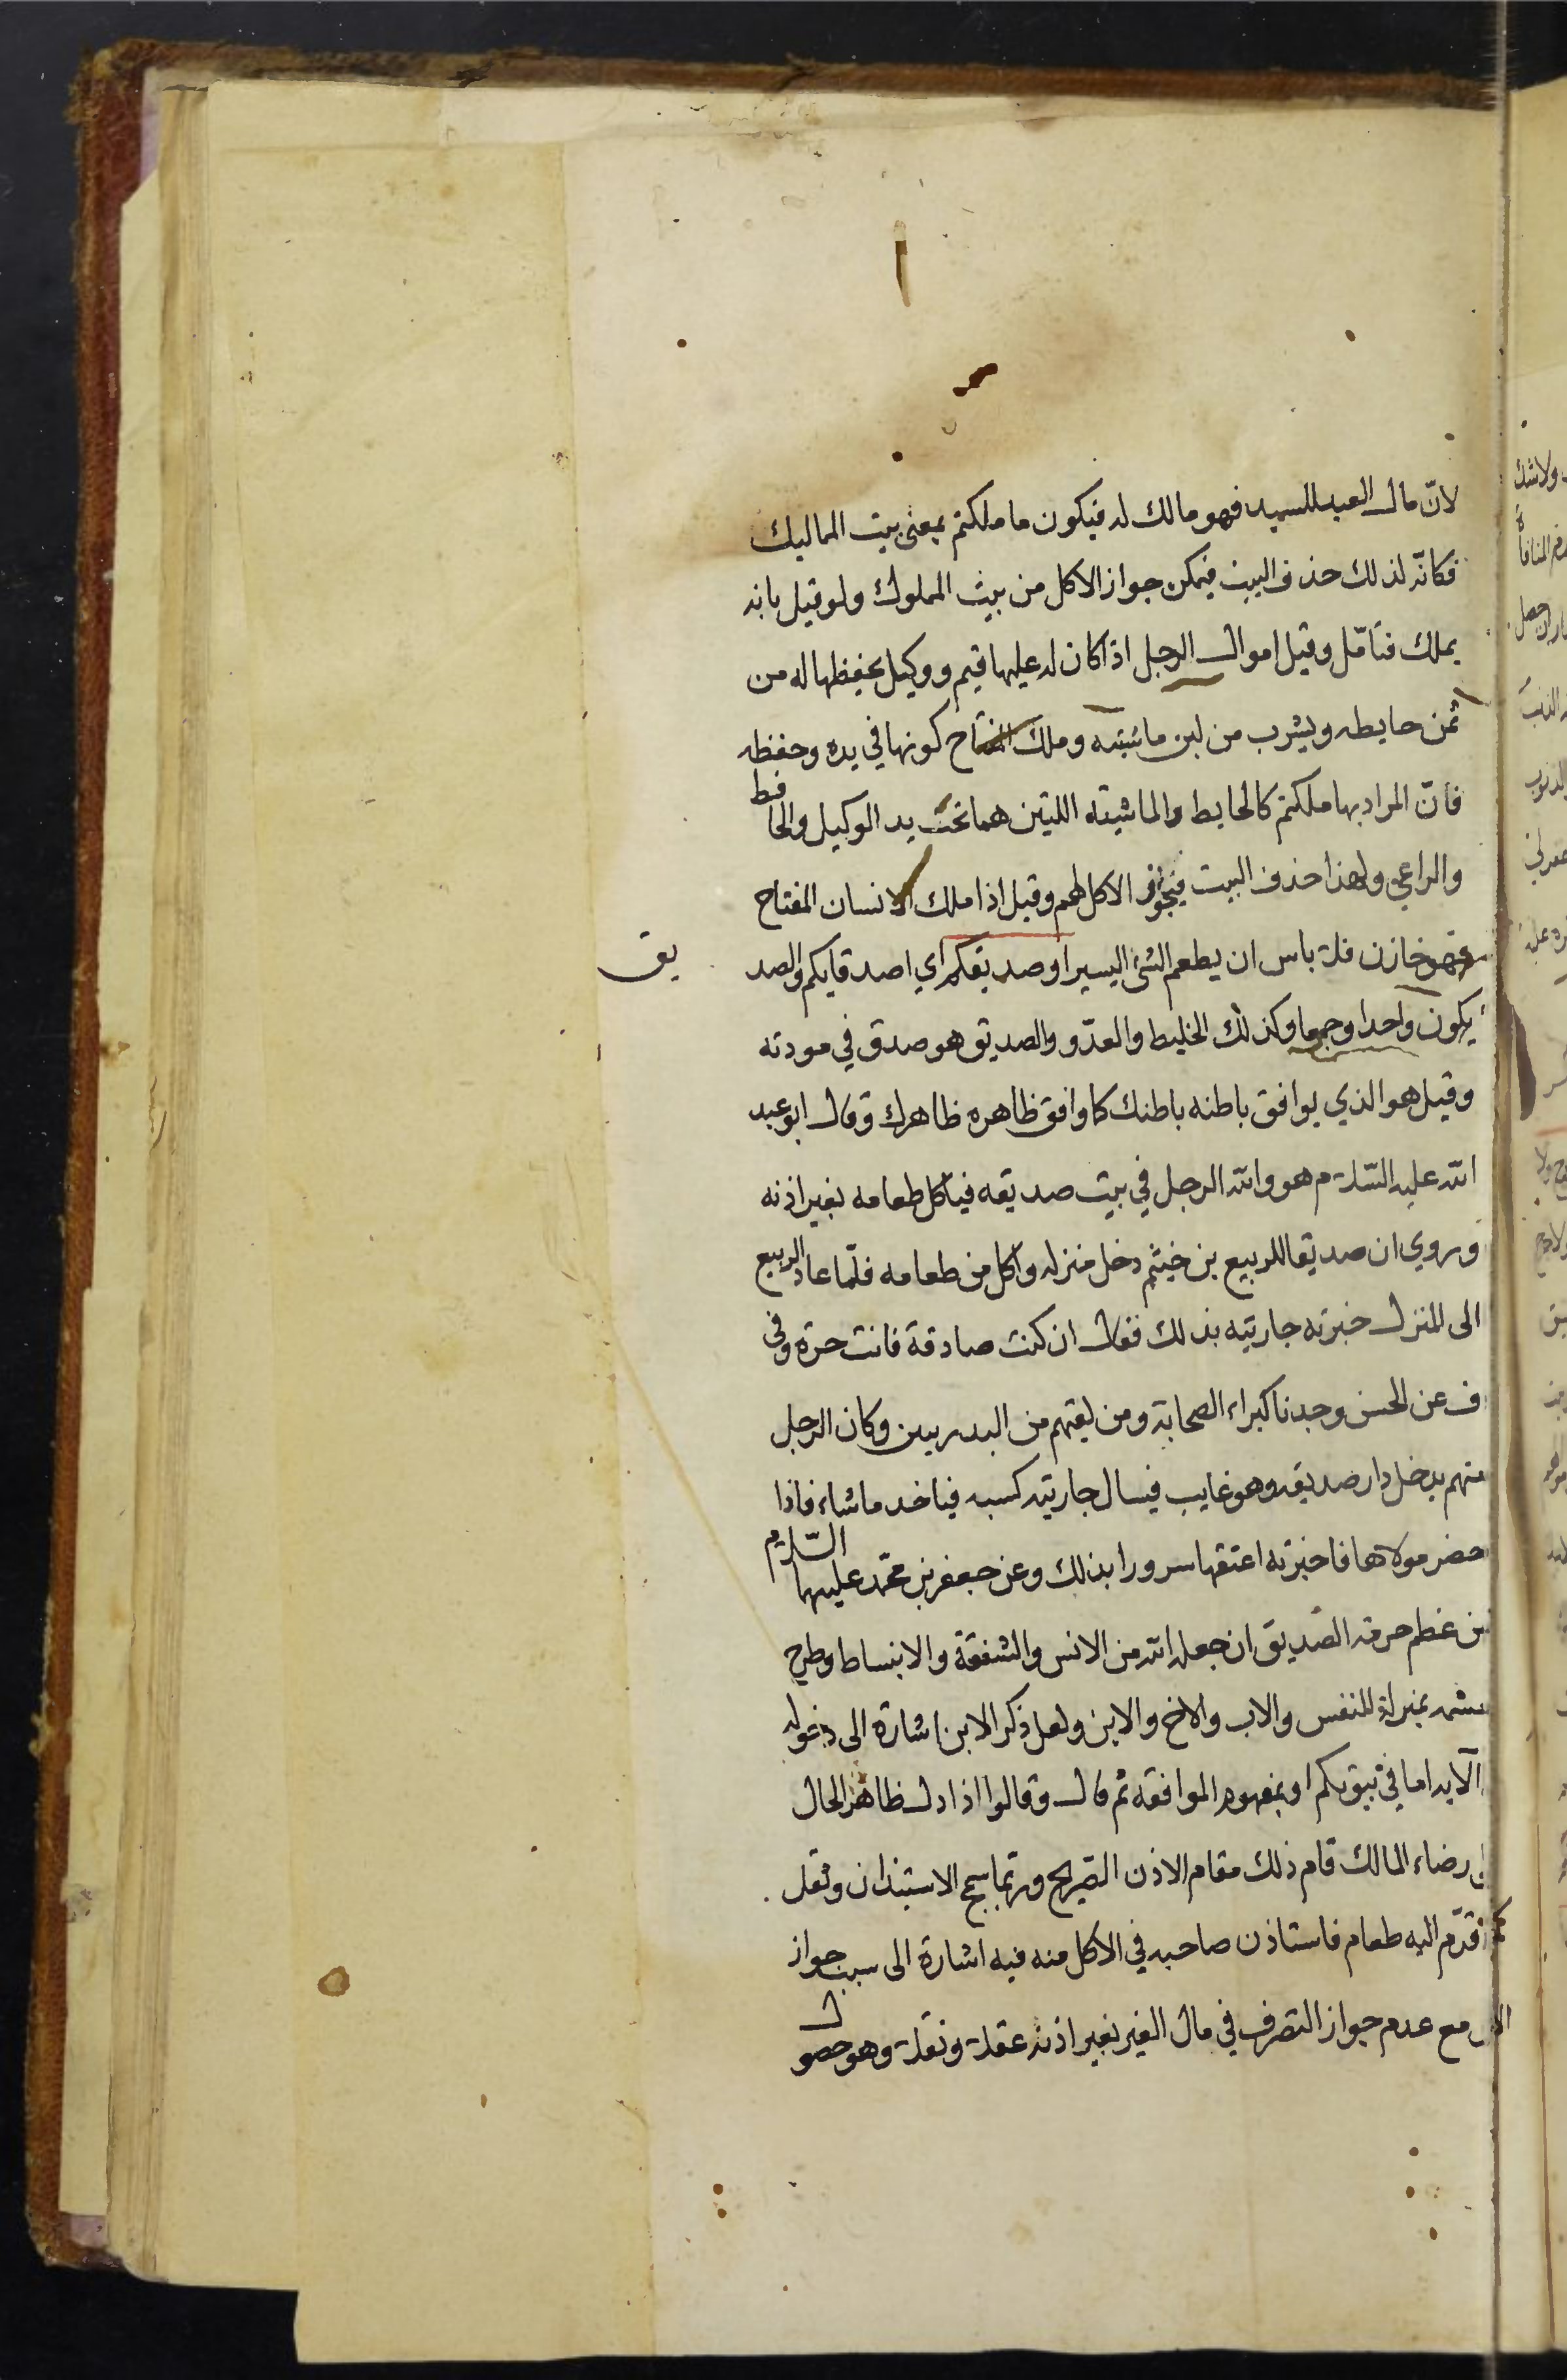 لانّ مال العبد للسيد فهو مالك له فيكون ما ملكتم بمعنى بيت المماليك
فكانّه لذلك حذف البيت فيمكن جواز الاكل من بيت المملوك ولو قيل بانه
يملك فتأمّل وقيل اموال الرجل اذا كان له عليها قيم ووكيل يحفظها له من
ثمن حايطه ويشرب من لبن ماشيته وملك المفتاح كونها في يده وحفظه
فانّ المراد بها ملكتم كالحايط والماشيته اللتين هما تحت يد الوكيل والحافظ
والراعي ولهذا حذف البيت فيجوز الاكل لهم وقيل اذا ملك الانسان المفتاح
فهو خازن فلا باس ان يطعم الشئ اليسير او صديقكم اي اصدقايكم والصديق
يكون واحدا وجمعا وكذلك الخليط والعدّو والصديق هو صدق في مودته
وقيل هو الذي يوافق باطنه باطنك كما وافق ظاهره ظاهرك وقال ابو عبد
الله عليه السّلام هو والله الرجل في بيت صديقه فيأكل طعامه بغير اذنه
وروي ان صديقا للربيع بن خيثم دخل منزله واكل من طعامه فلمّا عاد الربيع
الى المنزل خبرته جاريته بذلك فقال ان كنت صادقة فانت حرة وفى
ف عن الحسن وجدنا كبراء الصحابة ومن لقيهم من البدريين وكان الرجل
منهم يدخل دار صديقه وهو غايب فيسال جاريته كسبه فياخد ما شاء فاذا
حضر مولاها فاخبرته اعتقها سرورا بذلك وعن جعفر بن محمّد عليهما السّلام
من عظم حرمة الصّديق ان جعله الله من الانس والشفقة والانبساط وطرح
بمنزلة النفس والاب والاخ والابن ولعل ذكر الابن اشارة الى دخوله
الآية اما في بيوتكم او بمفهوم الموافقه ثم قال وقالوا اذا دل ظاهر الحال
رضاء المالك قام ذلك مقام الاذن الصّريح وربّما سمج الاستيذان وثقل
قدّم اليه طعام فاستاذن صاحبه في الاكل منه فيه اشارة الى سبب جواز
مع عدم جواز التصرف في مال الغير بغير اذنه عقلا ونقلا وهو حصول